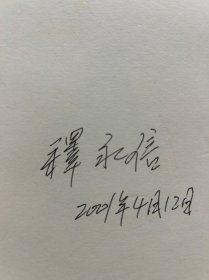 釋永信
2001年4月12日